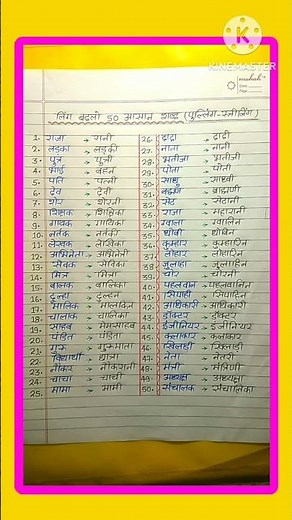 KINEMASTER
लिंग बदलो 50 आसान शब्द (पुल्लिंग-स्त्रीलिंग)
1. राजा → रानी
2. लड़का → लड़की
3. पुत्र → पुत्री
4. भाई → बहन
5. पति → पत्नी
6. देव → देवी
7. शेर → शेरनी
8. शिक्षक → शिक्षिका
9. गायक → गायिका
10. नर्तक → नर्तकी
11. लेखक → लेखिका
12. अभिनेता → अभिनेत्री
13. सेवक → सेविका
14. मित्र → मित्रा
15. बालक → बालिका
16. दूल्हा → दुल्हन
17. मालिक → मालकिन
18. चालक → चालिका
19. साहब → मेमसाहब
20. पंडित → पंडिता
21. गुरु → गुरुमाता
22. विद्यार्थी → छात्रा
23. नौकर → नौकरानी
24. चाचा → चाची
25. मामा → मामी
26. दादा → दादी
27. नाना → नानी
28. भतीजा → भतीजी
29. पोता → पोती
30. साधु → साध्वी
31. ब्राह्मण → ब्राह्मणी
32. सेठ → सेठानी
33. राजा → महारानी
34. ग्वाला → ग्वालिन
35. धोबी → धोबिन
36. कुम्हार → कुम्हारिन
37. लोहार → लोहारिन
38. जुलाहा → जुलाहिन
39. चोर → चोरनी
40. पहलवान → पहलवानिन
41. सिपाही → सिपाहिन
42. अधिकारी → अधिकारी
43. डॉक्टर → डॉक्टर
44. इंजीनियर → इंजीनियर
45. कलाकार → कलाकार
46. खिलाड़ी → खिलाड़ी
47. नेता → नेत्री
48. मंत्री → मंत्रिणी
49. अध्यक्ष → अध्यक्षा
50. संचालक → संचालिका